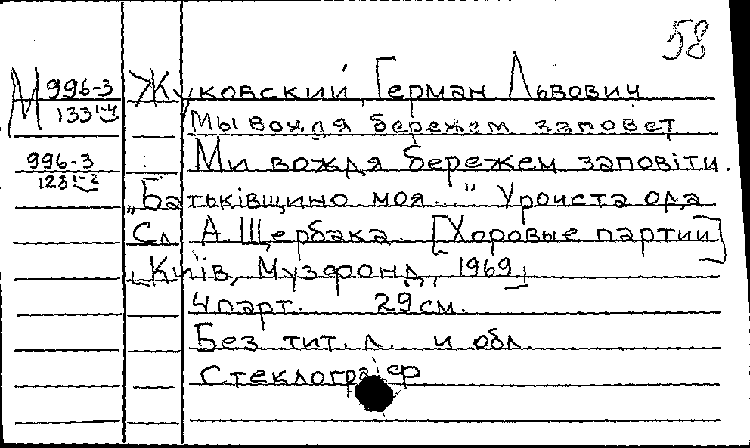 58
М 996-3 Жуковский, Герман Львович
133 1-4 Мы вождя бережем заповет
996-3 Ми вождя бережем заповіти.
128 1-2
„Батьківщино моя..." Урочиста ода
Сл. А. Щербака. [Хоровые партии]
[Київ, Музфонд, 1969]
4 парт. 29 см.
Без тит. л. и обл.
Стеклограф